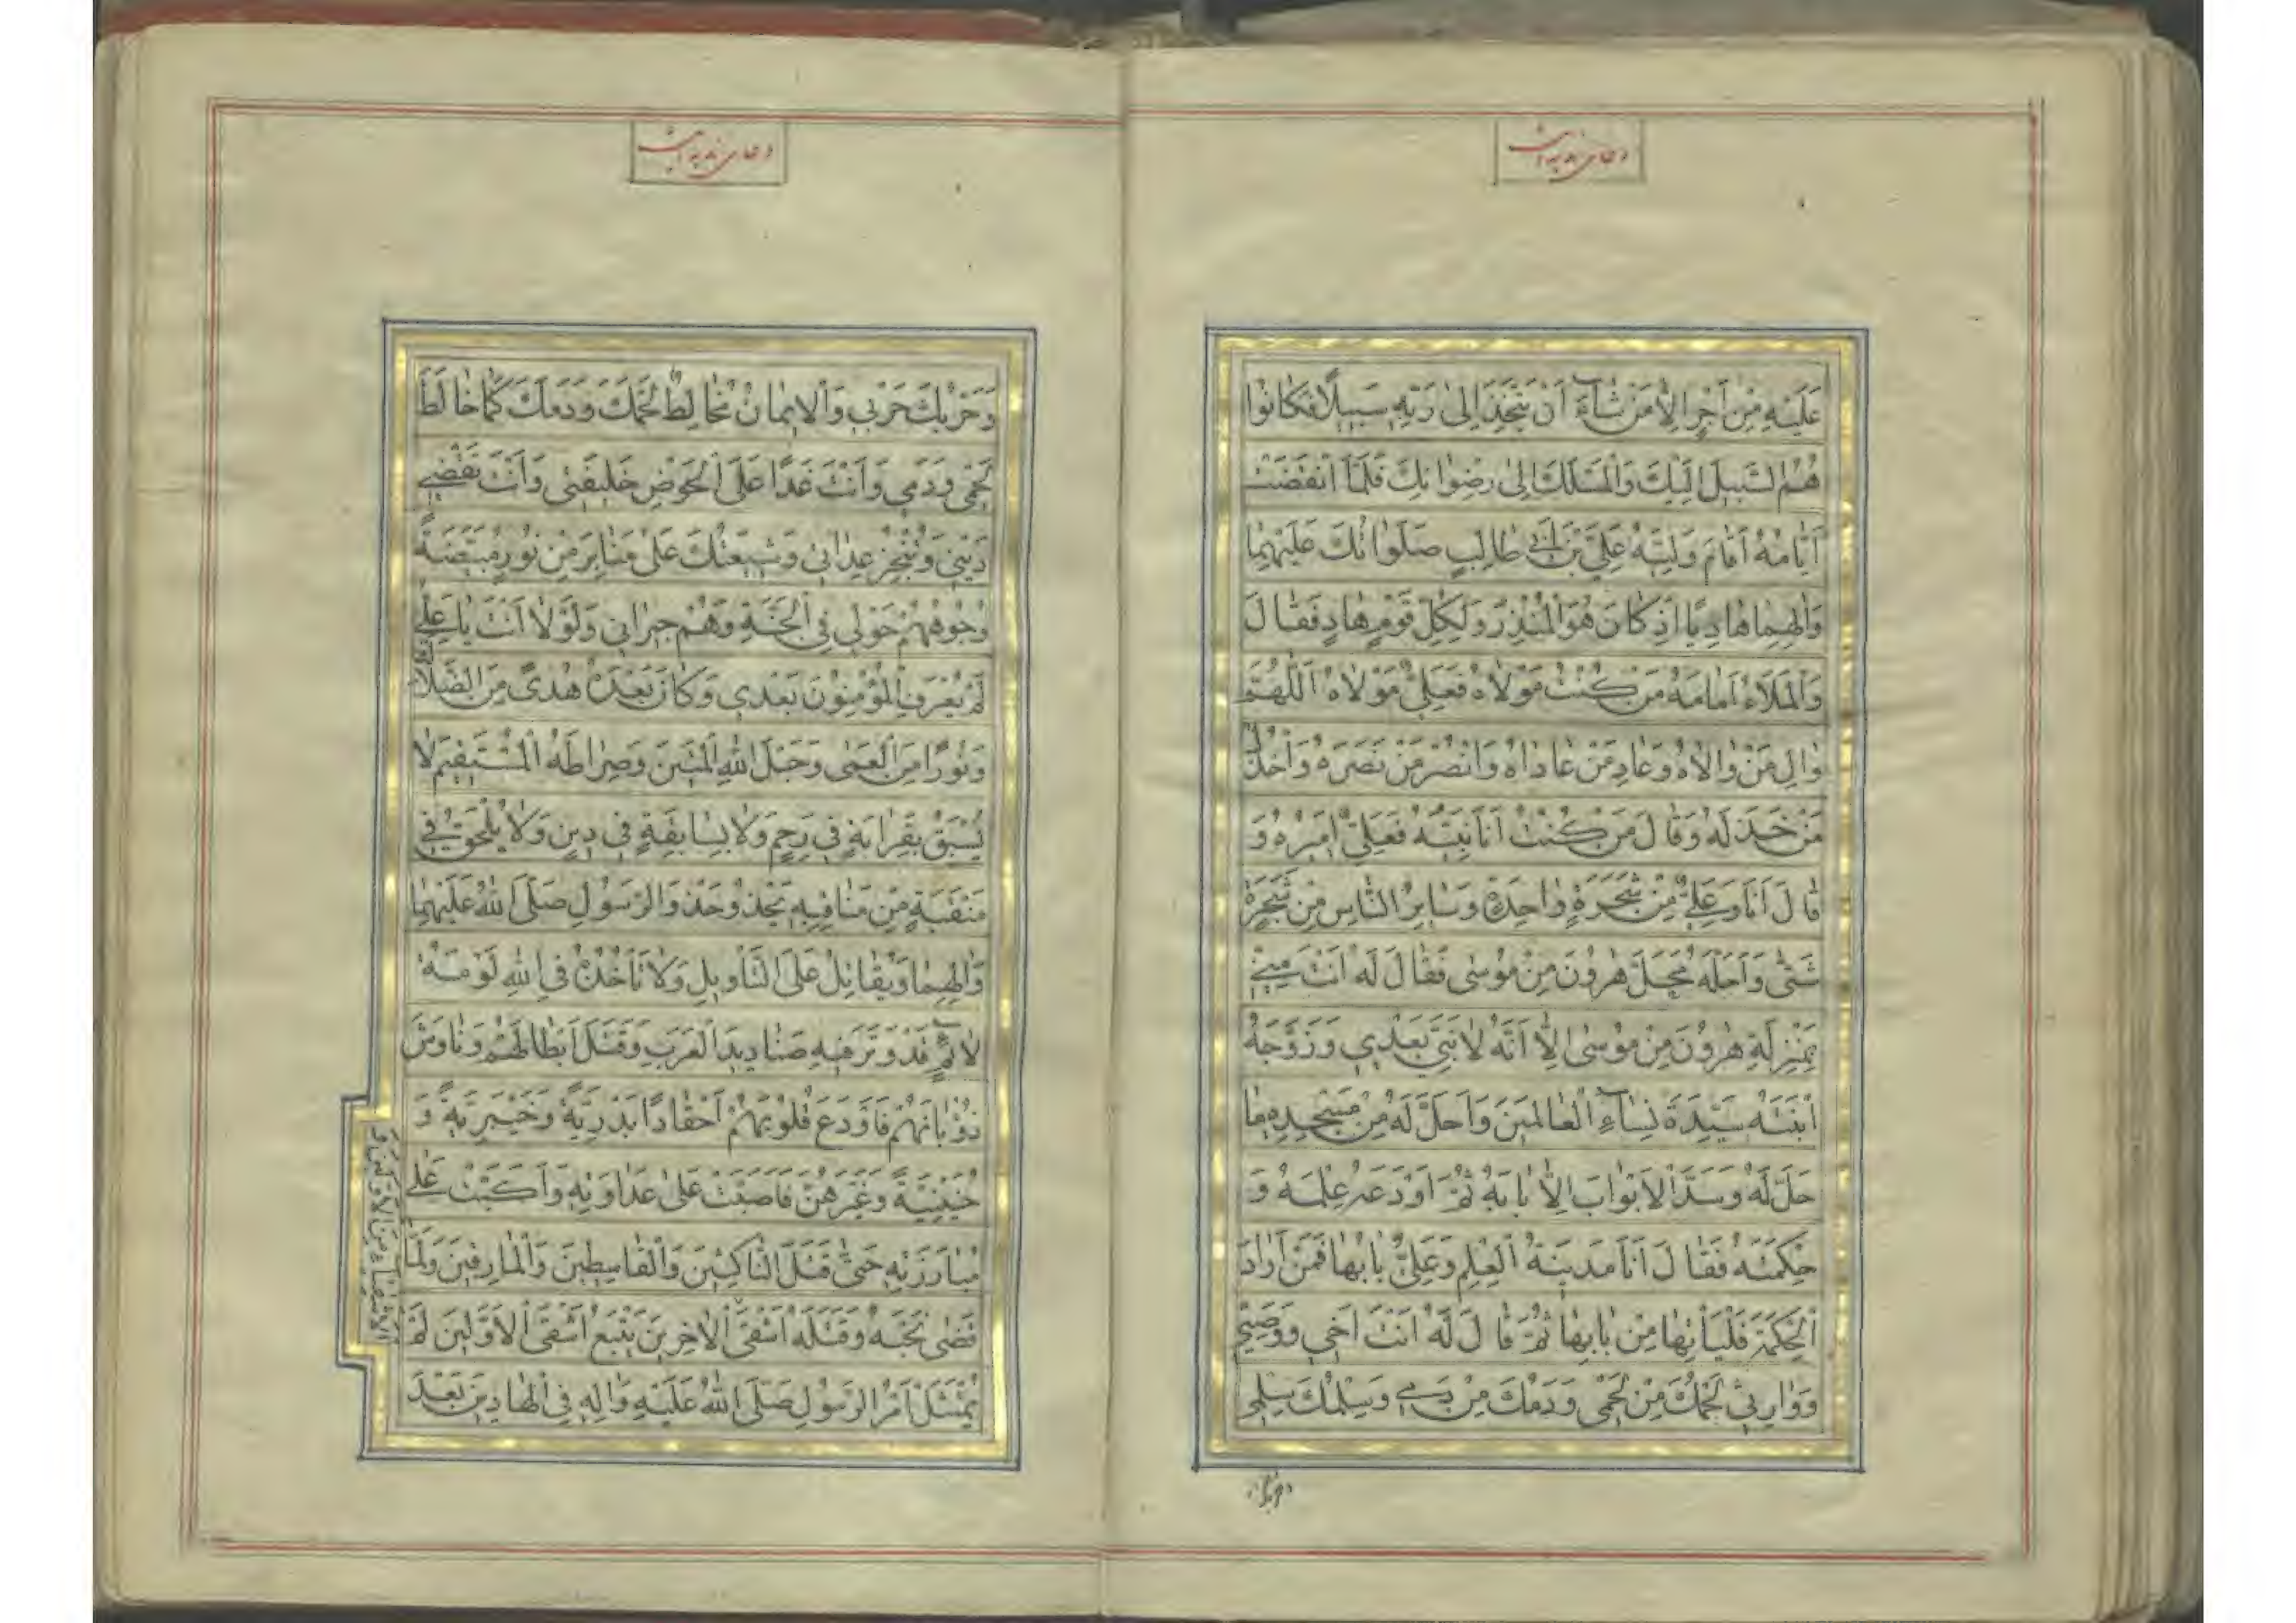 دعای ندبه است
عَلَيْهِ مِنْ اَجْرٍ اِلاّٰ مَنْ شٰآءَ اَنْ يَتَّخِذَ اِلىٰ رَبِّهِ سَبِيلًا فَكٰانُوا
هُمُ السَّبِيلَ اِلَيْكَ وَالْمَسْلَكَ اِلىٰ رِضْوٰانِكَ فَلَمَّا انْقَضَتْ
اَيّٰامُهُ اَقٰامَ وَلِيَّهُ عَلِيَّ بْنَ اَبي طٰالِبٍ صَلَوٰاتُكَ عَلَيْهِمٰا
وَاٰلِهِمٰا هٰادِيًا اِذْ كٰانَ هُوَ الْمُنْذِرُ وَلِكُلِّ قَوْمٍ هٰادٍ فَقٰالَ
وَالْمَلَاءُ اَمٰامَهُ مَنْ كُنْتُ مَوْلاٰهُ فَعَلِيٌّ مَوْلاٰهُ اَللّٰهُمَّ
وٰالِ مَنْ وٰالاٰهُ وَعٰادِ مَنْ عٰادٰاهُ وَانْصُرْ مَنْ نَصَرَهُ وَاخْذُلْ
مَنْ خَذَلَهُ وَقٰالَ مَنْ كُنْتُ اَنَا نَبِيَّهُ فَعَلِيٌّ اَمِيرُهُ وَ
قٰالَ اَنَا وَعَلِيٌّ مِنْ شَجَرَةٍ وٰاحِدَةٍ وَسٰايِرُ النّٰاسِ مِنْ شَجَرَةٍ
شَتّىٰ وَاَحَلَّهُ مَحَلَّ هٰرُونَ مِنْ مُوسىٰ فَقٰالَ لَهُ اَنْتَ مِنّي
بِمَنْزِلَةِ هٰرُونَ مِنْ مُوسىٰ اِلاّٰ اَنَّهُ لاٰ نَبِيَّ بَعْدِي وَزَوَّجَهُ
ابْنَتَهُ سَيِّدَةَ نِسٰآءِ الْعٰالَمِينَ وَاَحَلَّ لَهُ مِنْ مَسْجِدِهِ مٰا
حَلَّ لَهُ وَسَدَّ الْاَبْوٰابَ اِلاّٰ بٰابَهُ ثُمَّ اَوْدَعَهُ عِلْمَهُ وَ
حِكْمَتَهُ فَقٰالَ اَنَا مَدِينَةُ الْعِلْمِ وَعَلِيٌّ بٰابُهٰا فَمَنْ اَرٰادَ
الْحِكْمَةَ فَلْيَأْتِهٰا مِنْ بٰابِهٰا ثُمَّ قٰالَ لَهُ اَنْتَ اَخِي وَوَصِيّي
وَوٰارِثي لَحْمُكَ مِنْ لَحْمي وَدَمُكَ مِنْ دَمي وَسِلْمُكَ سِلْمي
وحربك
دعای ندبه است
وَحَرْبُكَ حَرْبي وَالْاِيمٰانُ مُخٰالِطٌ لَحْمَكَ وَدَمَكَ كَمٰا خٰالَطَ
لَحْمي وَدَمي وَاَنْتَ غَدًا عَلَى الْحَوْضِ خَلِيفَتي وَاَنْتَ تَقْضي
دَيْني وَتُنْجِزُ عِدٰاتي وَشِيعَتُكَ عَلىٰ مَنٰابِرَ مِنْ نُورٍ مُبْيَضَّةً
وُجُوهُهُمْ حَوْلي فِي الْجَنَّةِ وَهُمْ جيرٰاني وَلَوْلاٰ اَنْتَ يٰا عَلِيُّ
لَمْ يُعْرَفِ الْمُؤْمِنُونَ بَعْدي وَكٰانَ بَعْدَهُ هُدًى مِنَ الضَّلاٰلِ
وَنُورًا مِنَ الْعَمىٰ وَحَبْلَ اللّٰهِ الْمَتينَ وَصِرٰاطَهُ الْمُسْتَقيمَ لاٰ
يُسْبَقُ بِقَرٰابَةٍ في رَحِمٍ وَلاٰ بِسٰابِقَةٍ في دينٍ وَلاٰ يُلْحَقُ في
مَنْقَبَةٍ مِنْ مَنٰاقِبِهِ يَحْذُو حَذْوَ الرَّسُولِ صَلَّى اللّٰهُ عَلَيْهِمٰا
وَاٰلِهِمٰا وَيُقٰاتِلُ عَلَى التَّأْوِيلِ وَلاٰ تَأْخُذُهُ فِي اللّٰهِ لَوْمَةُ
لاٰئِمٍ قَدْ وَتَرَ فيهِ صَنٰادِيدَ الْعَرَبِ وَقَتَلَ اَبْطٰالَهُمْ وَنٰاوَشَ
ذُؤْبٰانَهُمْ فَاَوْدَعَ قُلُوبَهُمْ اَحْقٰادًا بَدْرِيَّةً وَخَيْبَرِيَّةً وَ
حُنَيْنِيَّةً وَغَيْرَهُنَّ فَاَضَبَّتْ عَلىٰ عَدٰاوَتِهِ وَاَكَبَّتْ عَلىٰ
مُبٰارَزَتِهِ حَتّىٰ قَتَلَ النّٰاكِثينَ وَالْقٰاسِطينَ وَالْمٰارِقينَ وَلَمّٰا
قَضىٰ نَحْبَهُ وَقَتَلَهُ اَشْقَى الْاٰخِرينَ يَتْبَعُ اَشْقَى الْاَوَّلينَ لَمْ
يُمْتَثَلْ اَمْرُ الرَّسُولِ صَلَّى اللّٰهُ عَلَيْهِ وَاٰلِهِ فِي الْهٰادينَ بَعْدَ